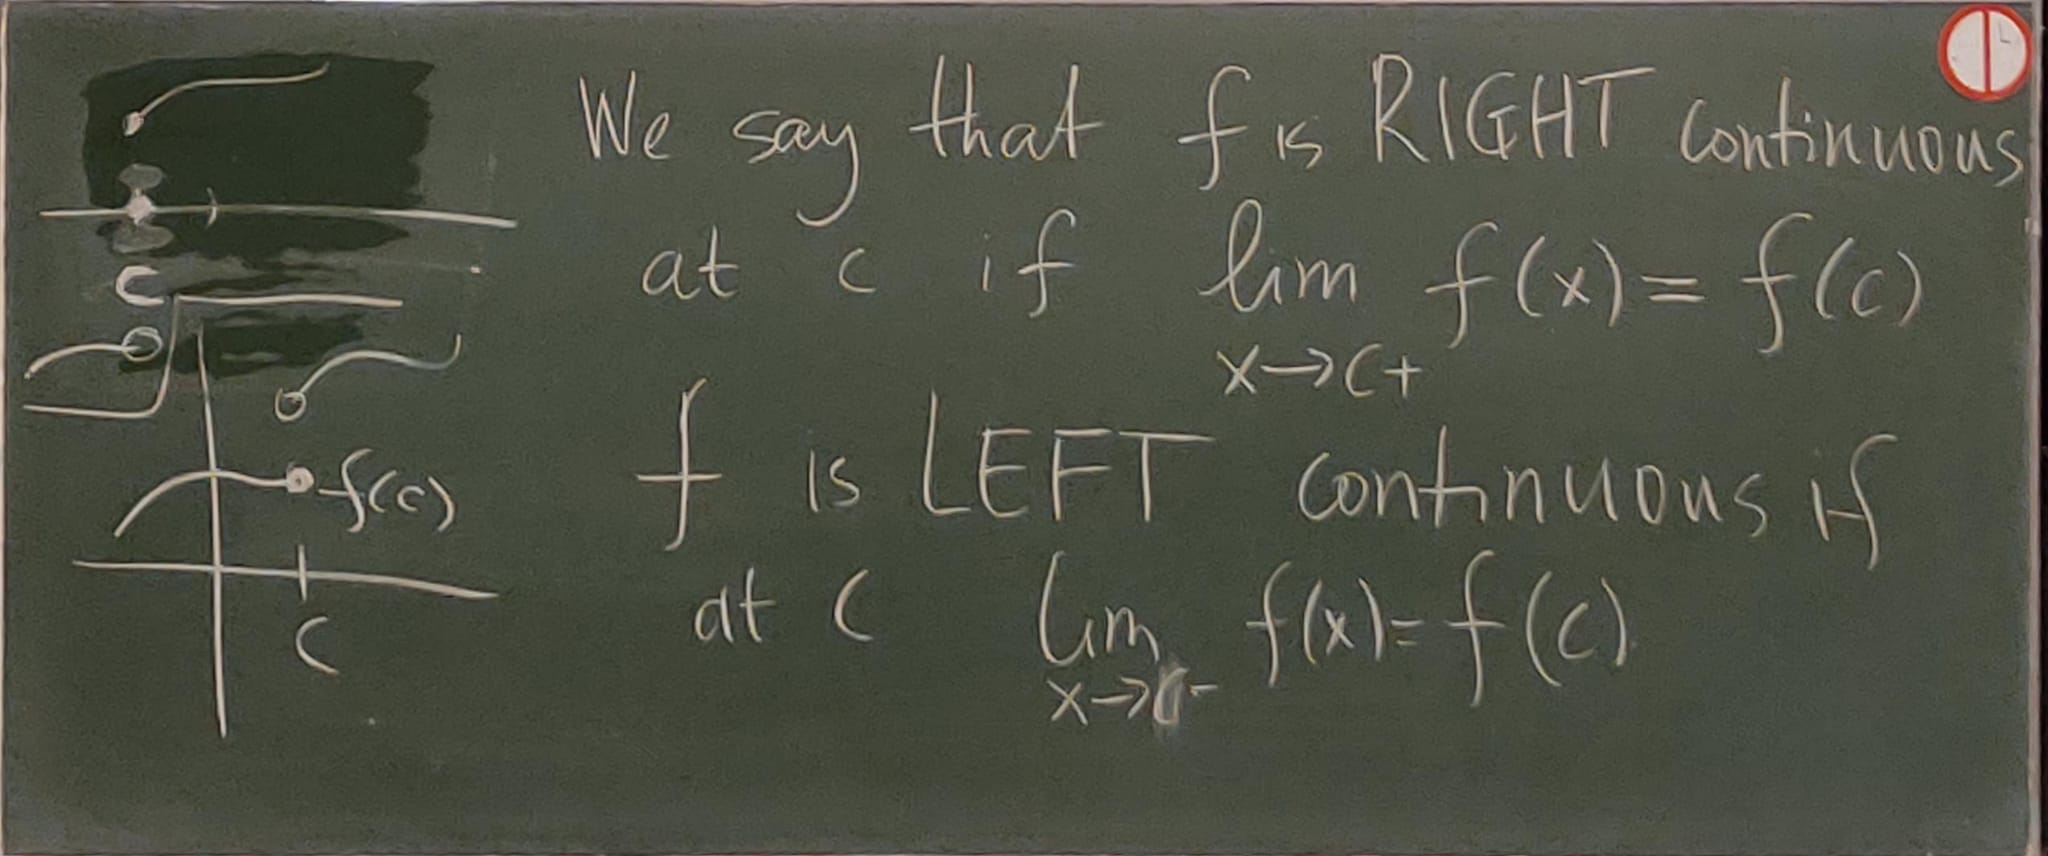 We say that f is RIGHT continuous
at c if lim f(x) = f(c)
x→c+
f is LEFT continuous if
at c lim f(x) = f(c)
x→c-
c
f(c)
c